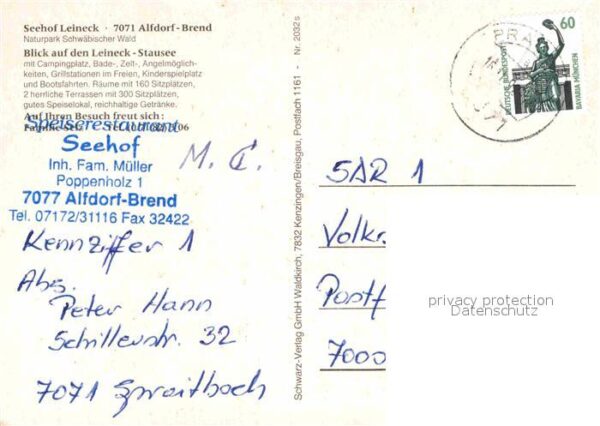 Seehof Leineck · 7071 Alfdorf-Brend
Naturpark Schwäbischer Wald
Blick auf den Leineck-Stausee
mit Campingplatz, Bade-, Zelt-, Angelmöglich-
keiten, Grillstationen im Freien, Kinderspielplatz
und Bootsfahrten. Räume mit 160 Sitzplätzen,
2 herrliche Terrassen mit 300 Sitzplätzen,
gutes Speiselokal, reichhaltige Getränke.
Auf Ihren Besuch freut sich:
Speiserestaurant
Seehof
Inh. Fam. Müller
Poppenholz 1
7077 Alfdorf-Brend
Tel. 07172/31116 Fax 32422
M. C.
Kennziffer 1
Abs.
Peter Hann
Schillerstr. 32
7071 Spraitbach
Schwarz-Verlag GmbH Waldkirch, 7832 Kenzingen/Breisgau, Postfach 1161 - Nr. 2032s
60
DEUTSCHE BUNDESPOST
BAVARIA MÜNCHEN
SAR 1
Volkr.
Postf
7000
privacy protection
Datenschutz